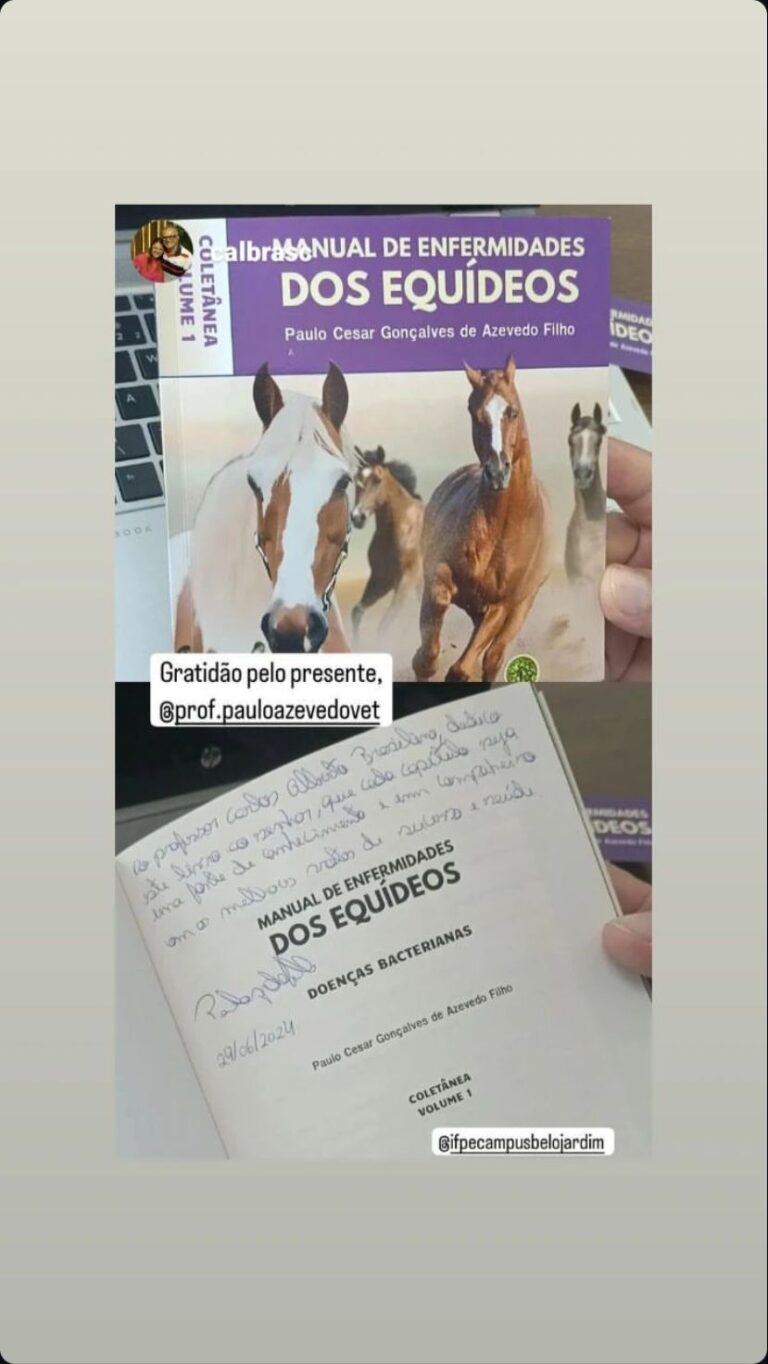 calbrasc
COLETÂNEA
VOLUME 1
MANUAL DE ENFERMIDADES
DOS EQUÍDEOS
Paulo Cesar Gonçalves de Azevedo Filho
Gratidão pelo presente,
@prof.pauloazevedovet
ao professor Carlos Alberto Brasileiro, dedico
este livro ao senhor, que cada capítulo seja
uma fonte de conhecimento e um companheiro
com os melhores votos de sucesso e saúde.
MANUAL DE ENFERMIDADES
DOS EQUÍDEOS
DOENÇAS BACTERIANAS
29/06/2024
Paulo Cesar Gonçalves de Azevedo Filho
COLETÂNEA
VOLUME 1
@ifpecampusbelojardim